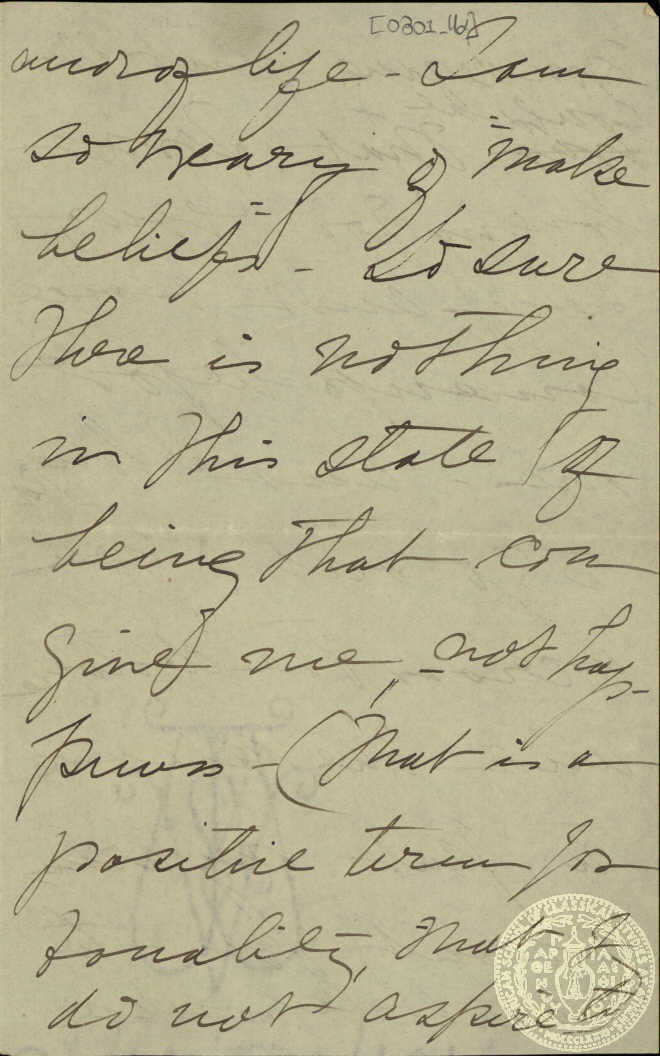 [0301_16v]
life - I am
so weary of "make
beliefs" - So sure
there is nothing
in this state of
being that can
give me, - not hap-
piness - (That is a
positive term for
tonality, that I
do not aspire to